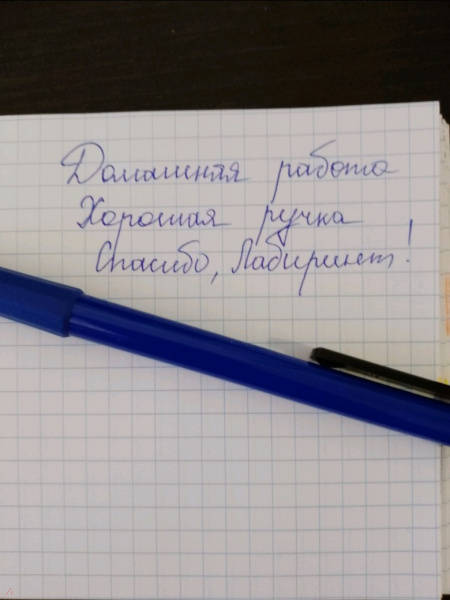 Домашняя работа
Хорошая ручка
Спасибо, Лабиринт!